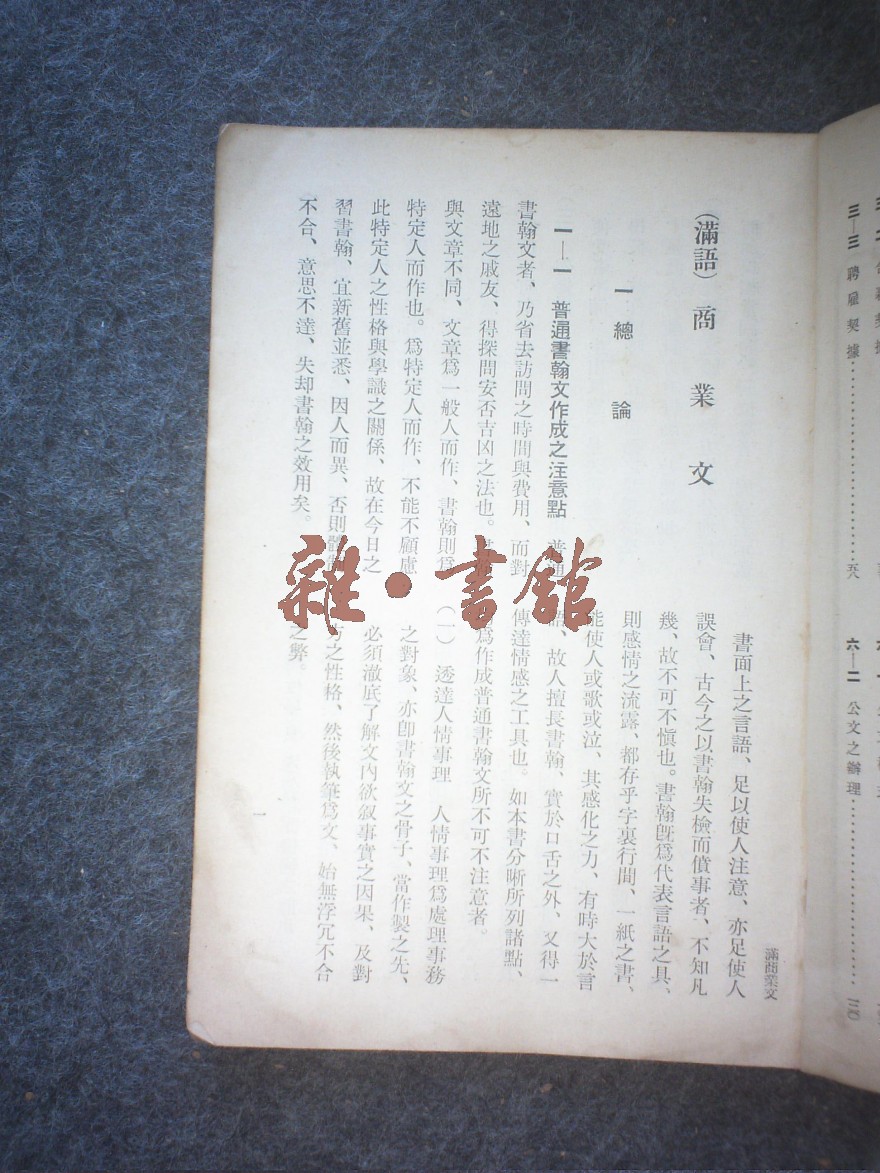 三—三 聘雇契據
五八
六—二 公文之辦理
滿商業文
（滿語）商業文
一 總論
一—一 普通書翰文作成之注意點 普通
書翰文者、乃省去訪問之時間與費用、而對
遠地之戚友、得探問安否吉凶之法也。
與文章不同、文章爲一般人而作、書翰則爲
特定人而作也。爲特定人而作、不能不顧慮
此特定人之性格與學識之關係、故在今日之
習書翰、宜新舊並悉、因人而異、否則
不合、意思不達、失却書翰之效用矣。
書面上之言語、足以使人注意、亦足使人
誤會、古今之以書翰失檢而僨事者、不知凡
幾、故不可不愼也。書翰旣爲代表言語之具、
則感情之流露、都存乎字裏行間、一紙之書、
能使人或歌或泣、其感化之力、有時大於言
語、故人擅長書翰、實於口舌之外、又得一
傳達情感之工具也。如本書分晰所列諸點、
爲作成普通書翰文所不可不注意者。
（一） 透達人情事理 人情事理爲處理事務
之對象、亦卽書翰文之骨子、當作製之先、
必須澈底了解文內欲叙事實之因果、及對
方之性格、然後執筆爲文、始無浮冗不合
之弊。
一
雜·書館